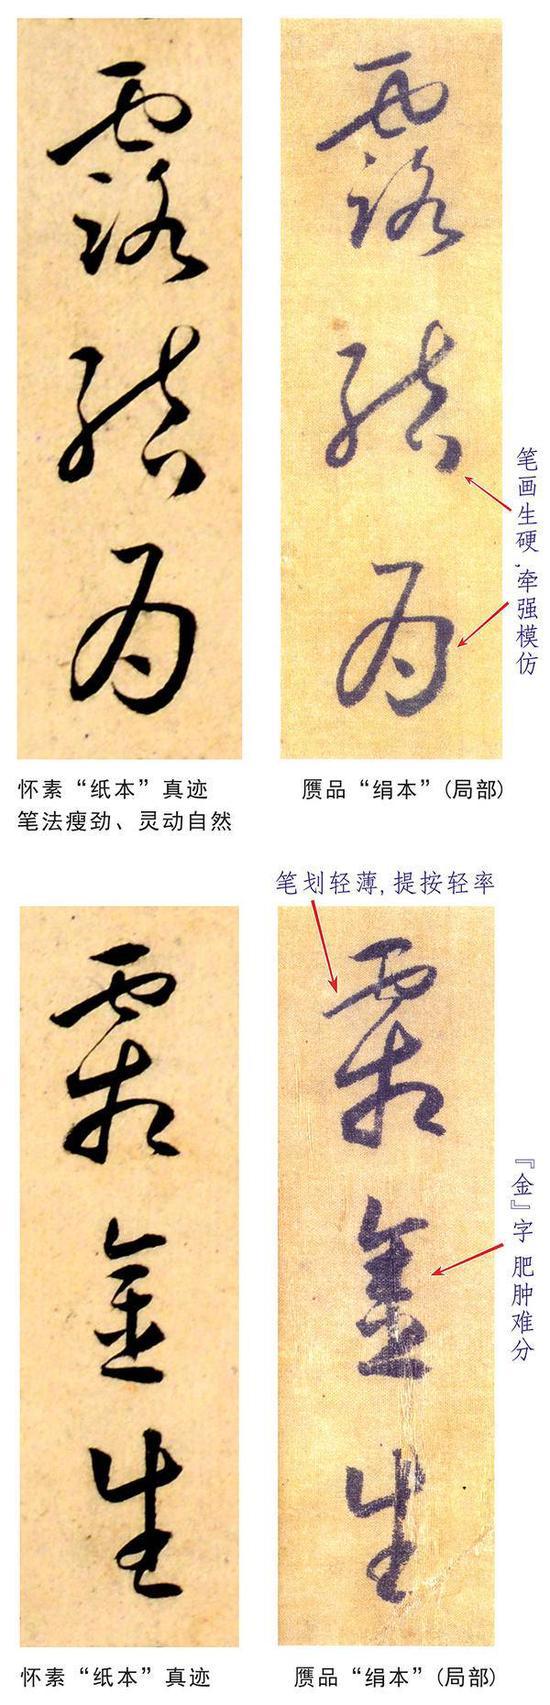 露結為
露結為
笔画生硬,牵强模仿
怀素“纸本”真迹
笔法瘦劲、灵动自然
赝品“绢本”(局部)
笔划轻薄,提按轻率
霜金生
霜金生
『金』字 肥肿难分
怀素“纸本”真迹
赝品“绢本”(局部)